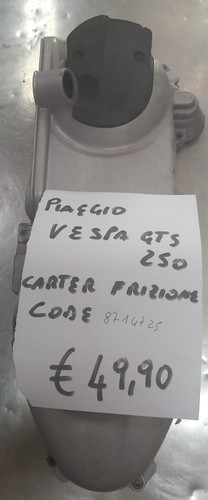 PIAGGIO
VESPA GTS
250
CARTER FRIZIONE
CODE 8714725
€ 49,90